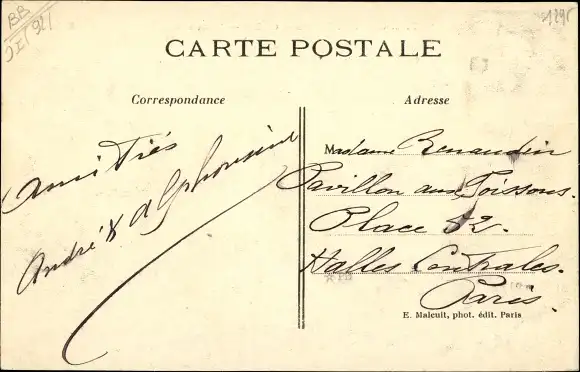 CARTE POSTALE
Correspondance
Adresse
Amitiés
André & Alphonsine
Madame Renaudin
Pavillon aux Poissons.
Place 12.
Halles Centrales.
Paris.
E. Malcuit, phot. édit. Paris
BB